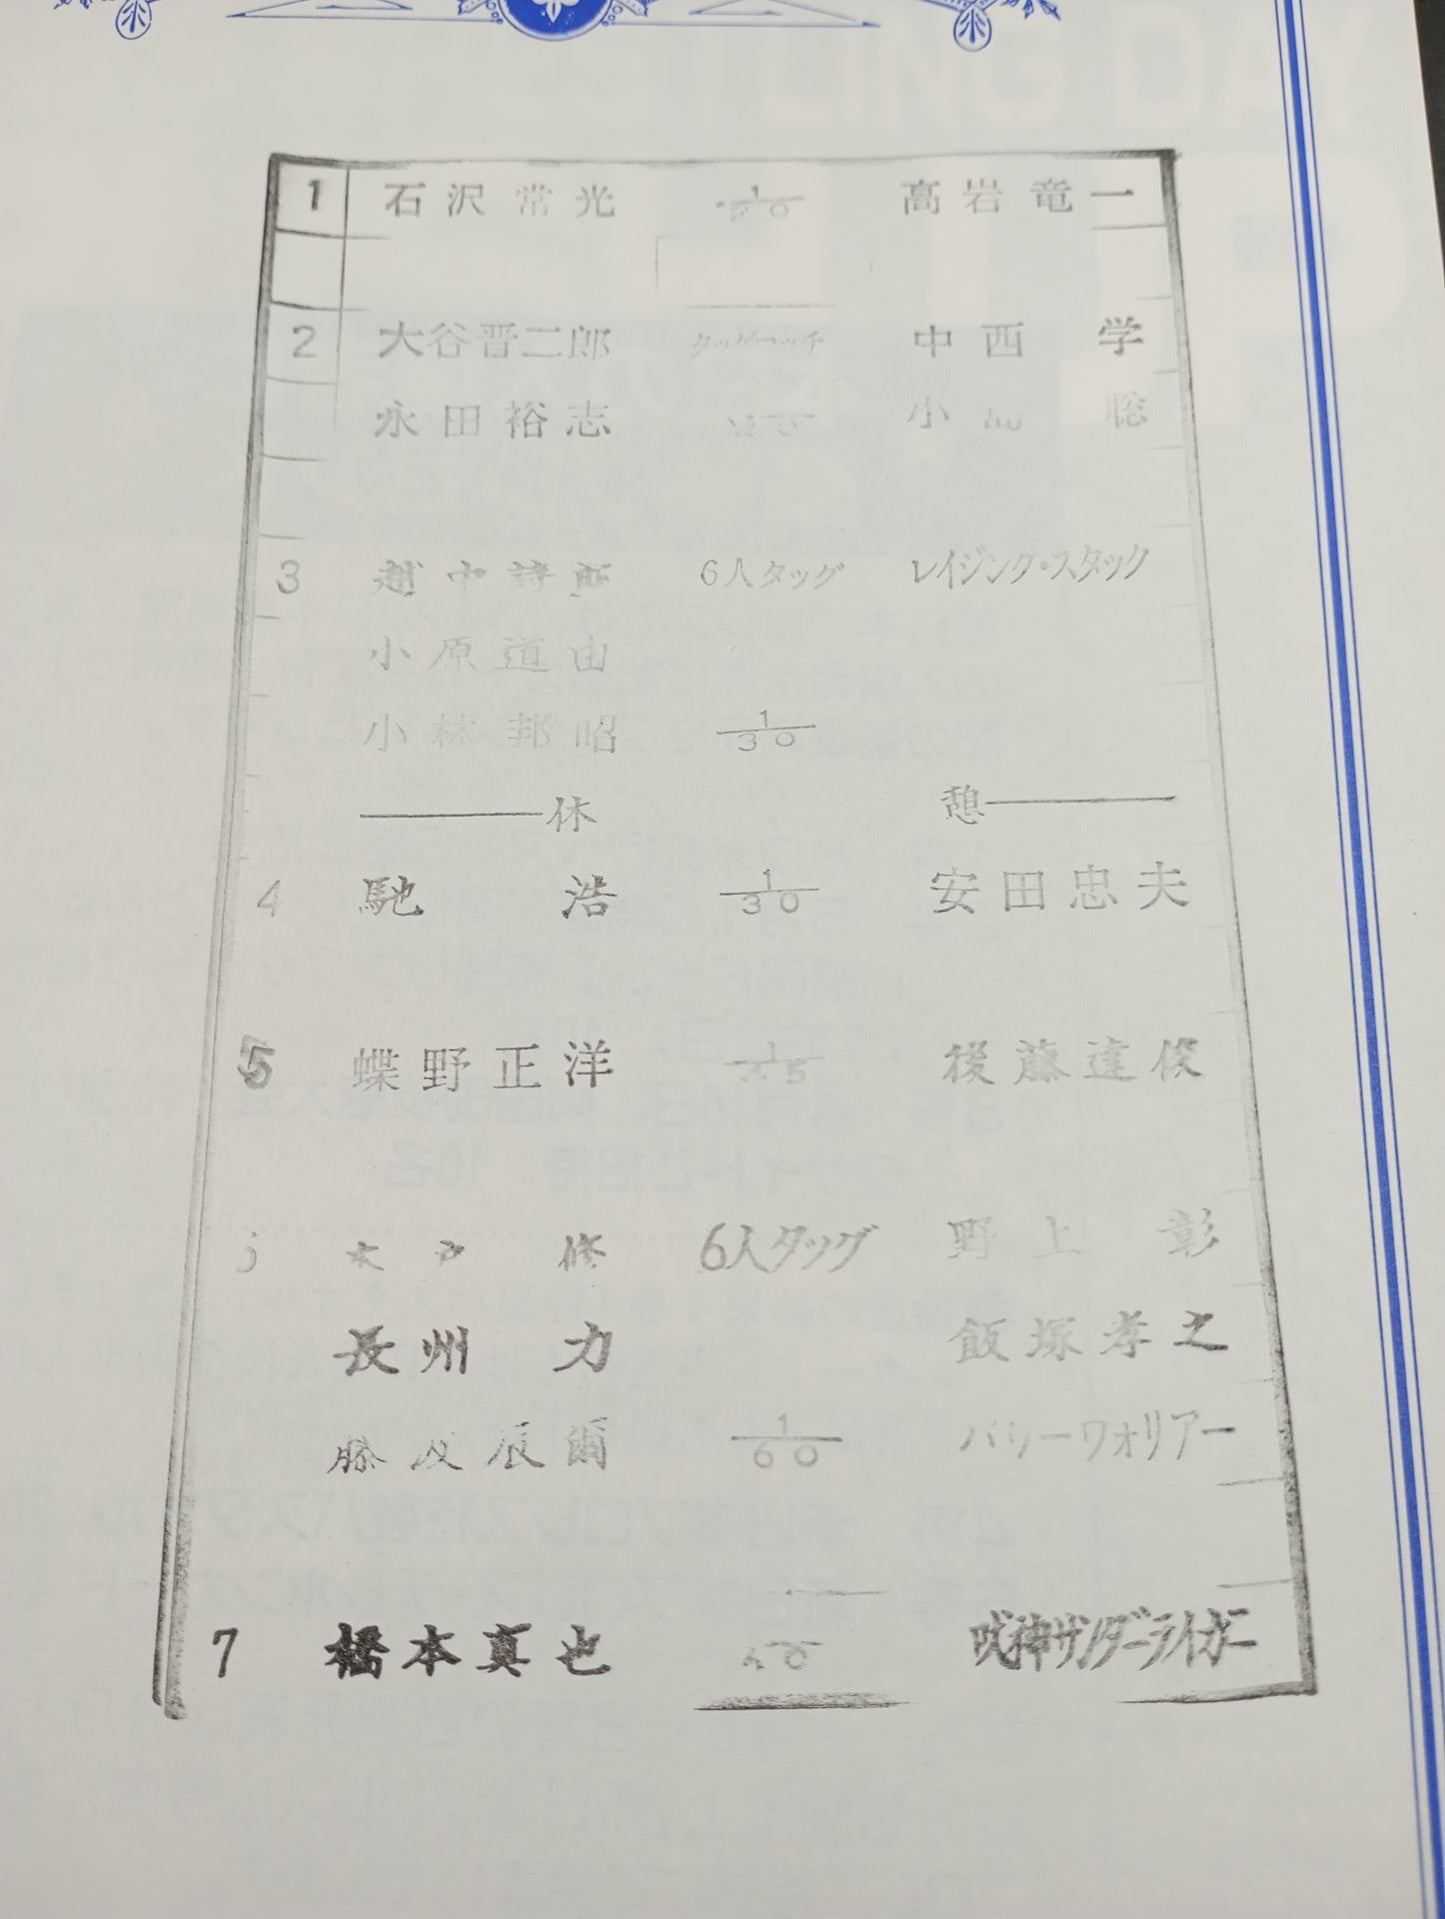 1 石沢常光 1/20 高岩竜一
2 大谷晋二郎 タッグマッチ 中西学
永田裕志 小 聡
3 越中詩郎 6人タッグ レイジング・スタッグ
小原道由
小林邦昭 1/30
休 憩
4 馳浩 1/30 安田忠夫
5 蝶野正洋 後藤達俊
木戸修 6人タッグ 野上彰
長州力 飯塚孝之
藤波辰爾 1/60 バリーウォリアー
7 橋本真也 獣神サンダーライガー